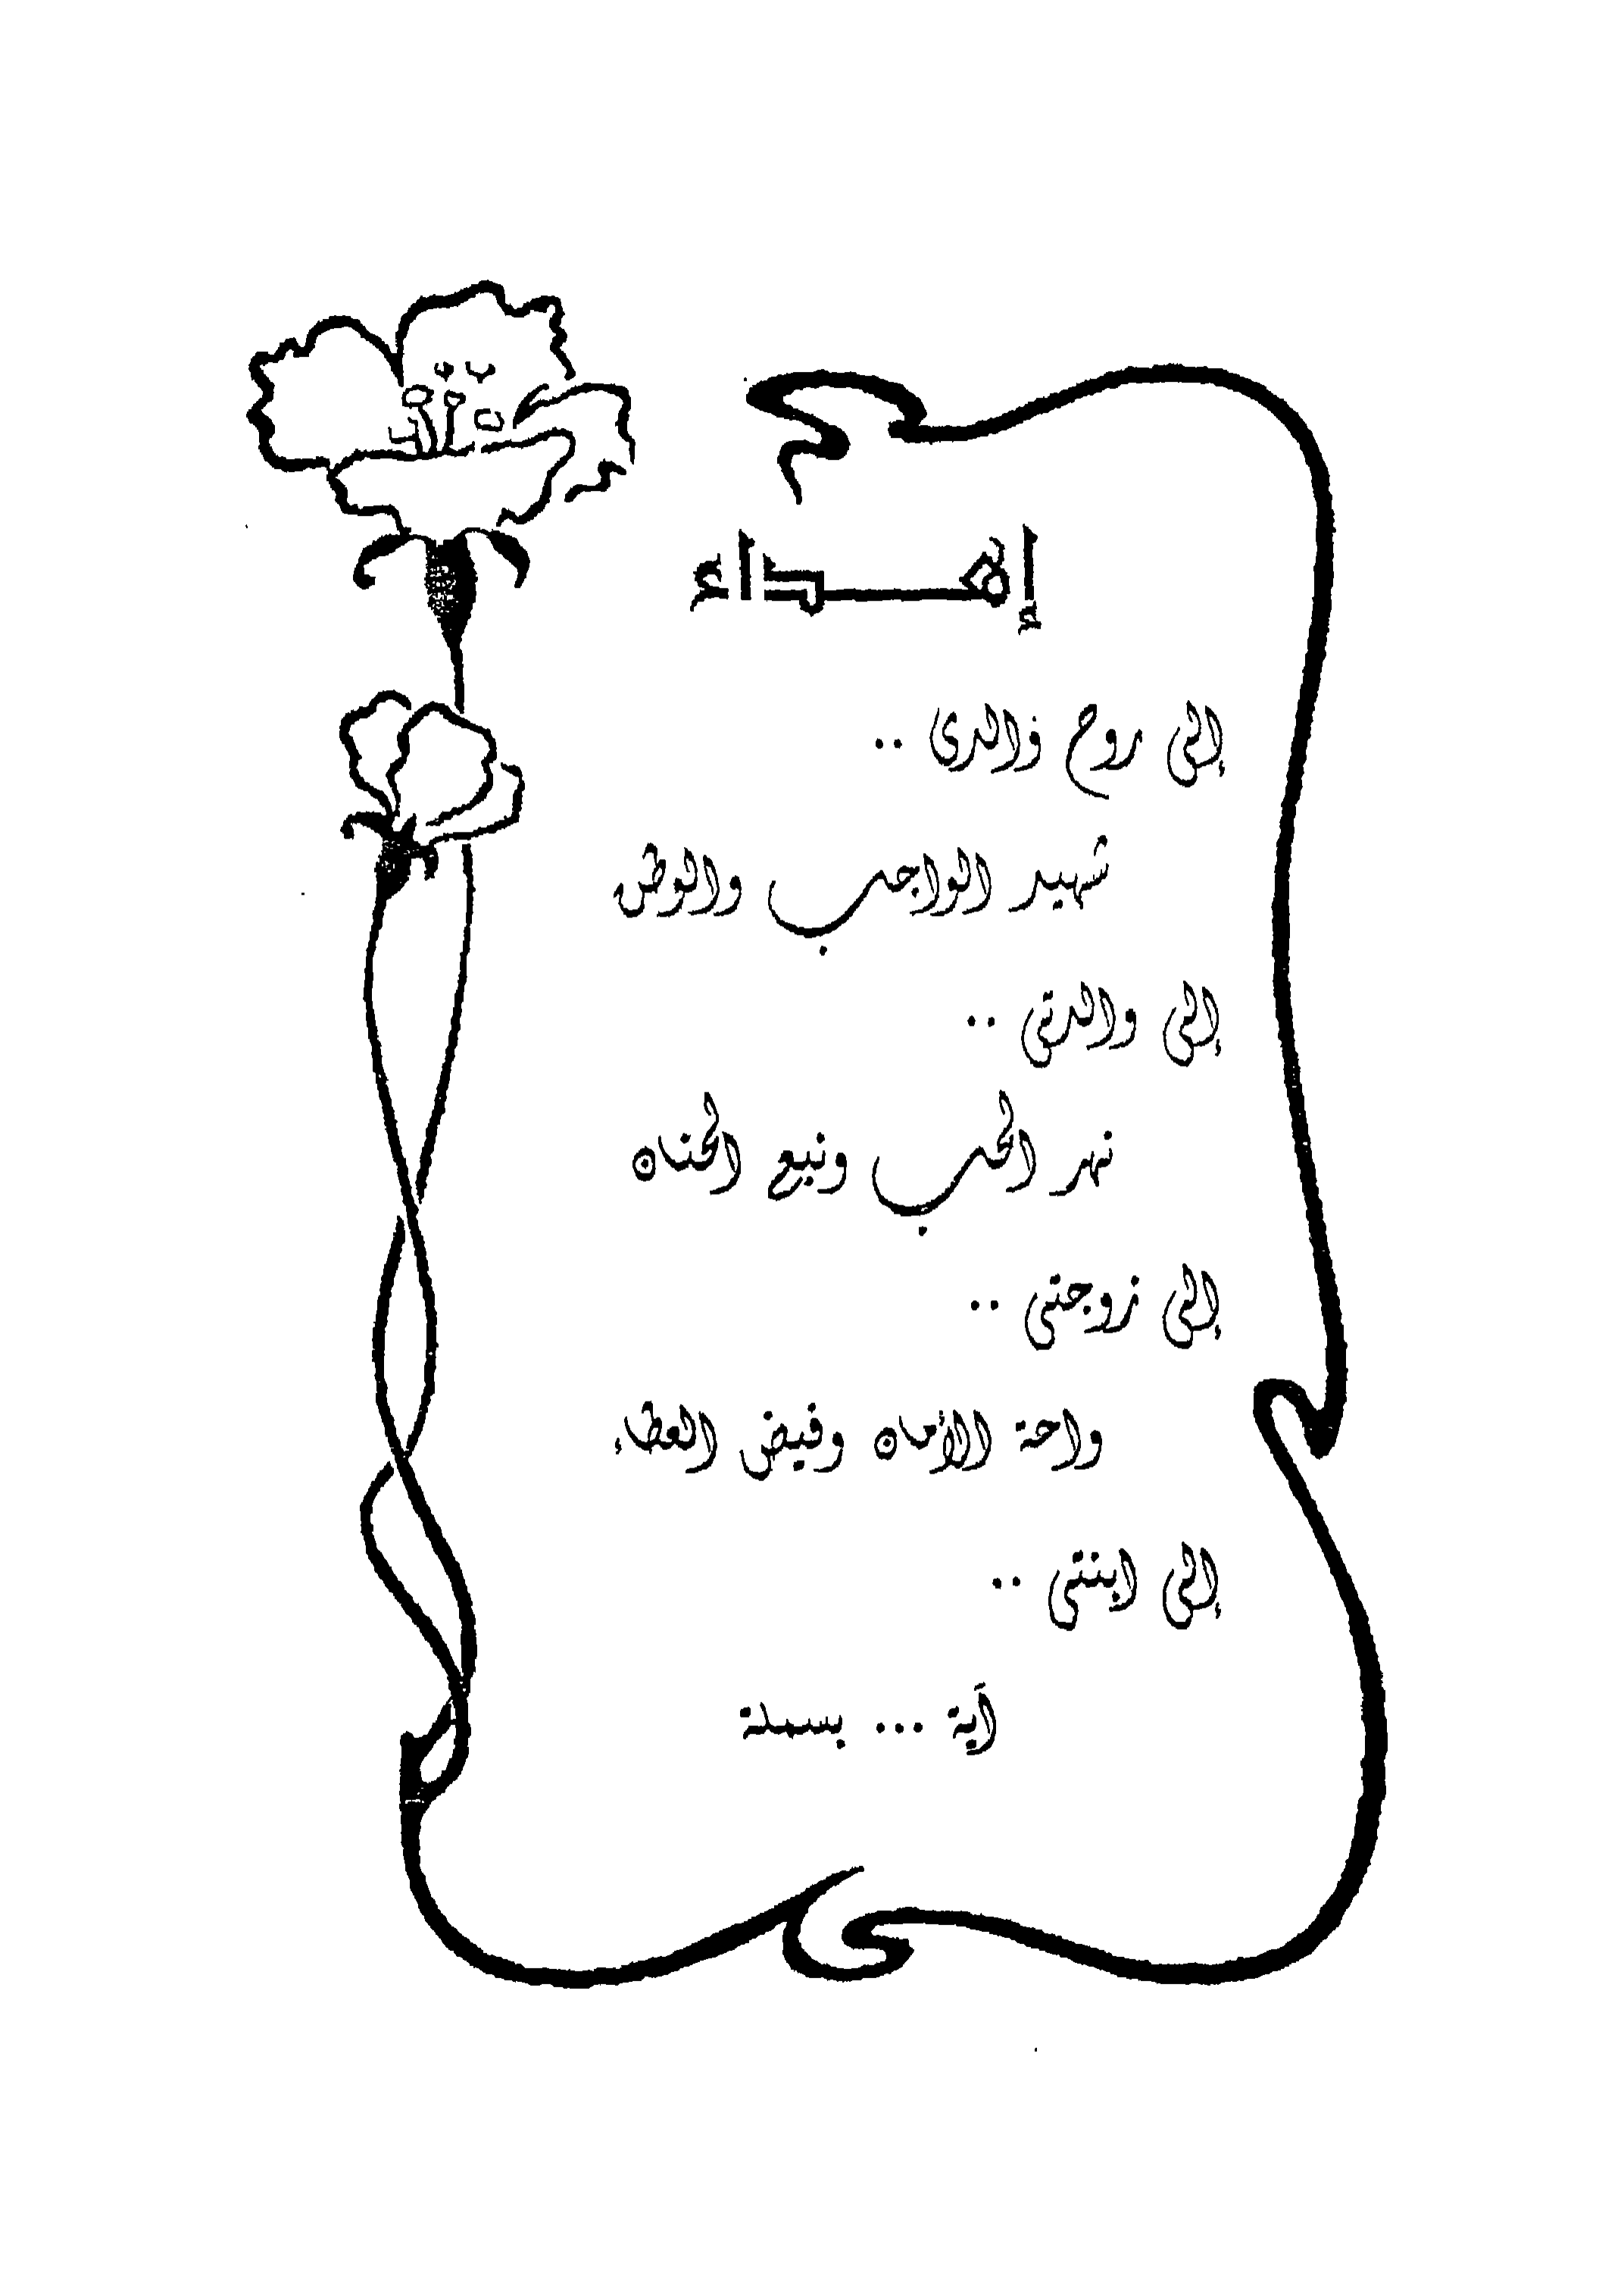 إهـــداء
إلى روح والدى ..
شهيد الواجب والوطن
إلى والدتى ..
نهر الحب ونبع الحنان
إلى زوجتى ..
واحة الأمان وفيض العطاء
إلى ابنتى ..
آية ... بسملة